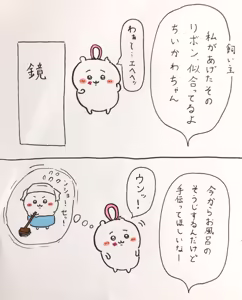 飼い主
私があげたその
リボン、似合ってるよ
ちいかわちゃん
わぁ…エヘヘッ
鏡
今からお風呂の
そうじするんだけど
手伝ってほしいなー
ウンッ!
ソショ…セッ!